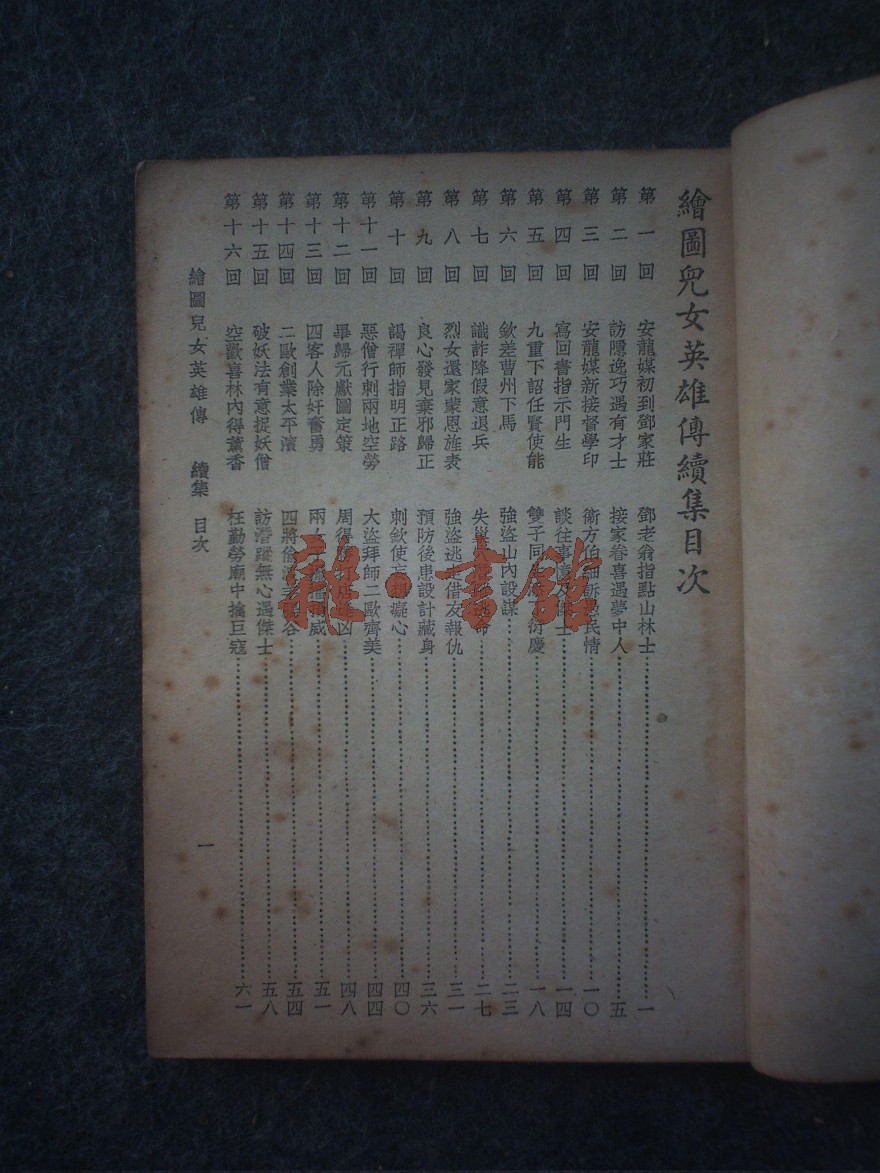 繪圖兒女英雄傳續集目次
第一回 安龍媒初到鄧家莊 鄧老翁指點山林士 一
第二回 訪隱逸巧遇有才士 接家眷喜遇夢中人 五
第三回 安龍媒新接督學印 衞方伯細訴 民情 一〇
第四回 寫回書指示門生 談往事 士 一四
第五回 九重下詔任賢使能 雙子同 衍慶 一八
第六回 欽差曹州下馬 強盜山內設謀 二三
第七回 識詐降假意退兵 失巢 命 二七
第八回 烈女還家蒙恩旌表 強盜逃走借友報仇 三一
第九回 良心發見棄邪歸正 預防後患設計藏身 三六
第十回 謁禪師指明正路 刺欽使妄 癡心 四〇
第十一回 惡僧行刺兩地空勞 大盜拜師二歐齊美 四四
第十二回 畢歸元獻圖定策 周得 凶 四八
第十三回 四客人除奸奮勇 兩 威 五一
第十四回 二歐創業太平濱 四將偷 谷 五四
第十五回 破妖法有意捉妖僧 訪潛蹤無心遇傑士 五八
第十六回 空歡喜林內得薰香 枉勤勞廟中擒巨寇 六一
繪圖兒女英雄傳 續集 目次 一
雜·書館